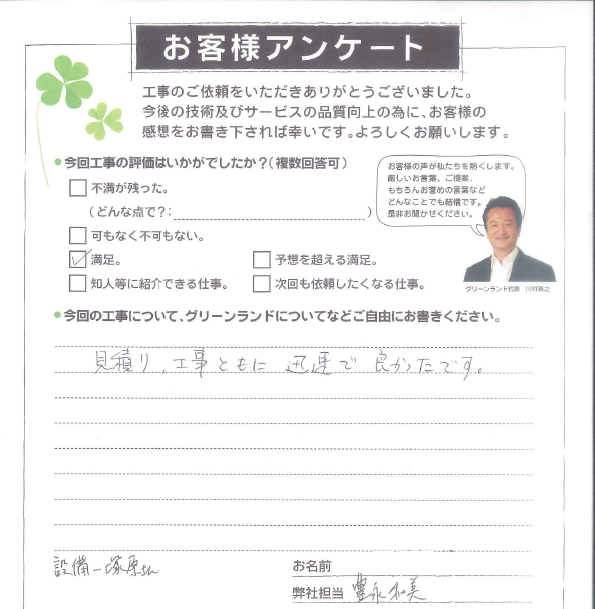 お客様アンケート
工事のご依頼をいただきありがとうございました。
今後の技術及びサービスの品質向上の為に、お客様の
感想をお書き下されば幸いです。よろしくお願いします。
今回工事の評価はいかがでしたか？（複数回答可）
不満が残った。
（どんな点で？：　　　　）
可もなく不可もない。
満足。
予想を超える満足。
知人等に紹介できる仕事。
次回も依頼したくなる仕事。
お客様の声が私たちを熱くします。
厳しいお言葉、ご提案、
もちろんお誉めの言葉など
どんなことでも結構です。
是非お聞かせください。
グリーンランド代表　川村英之
今回の工事について、グリーンランドについてなどご自由にお書きください。
見積り、工事ともに 迅速で 良かったです。
設備ー塚原さん
お名前
弊社担当 豊永和美